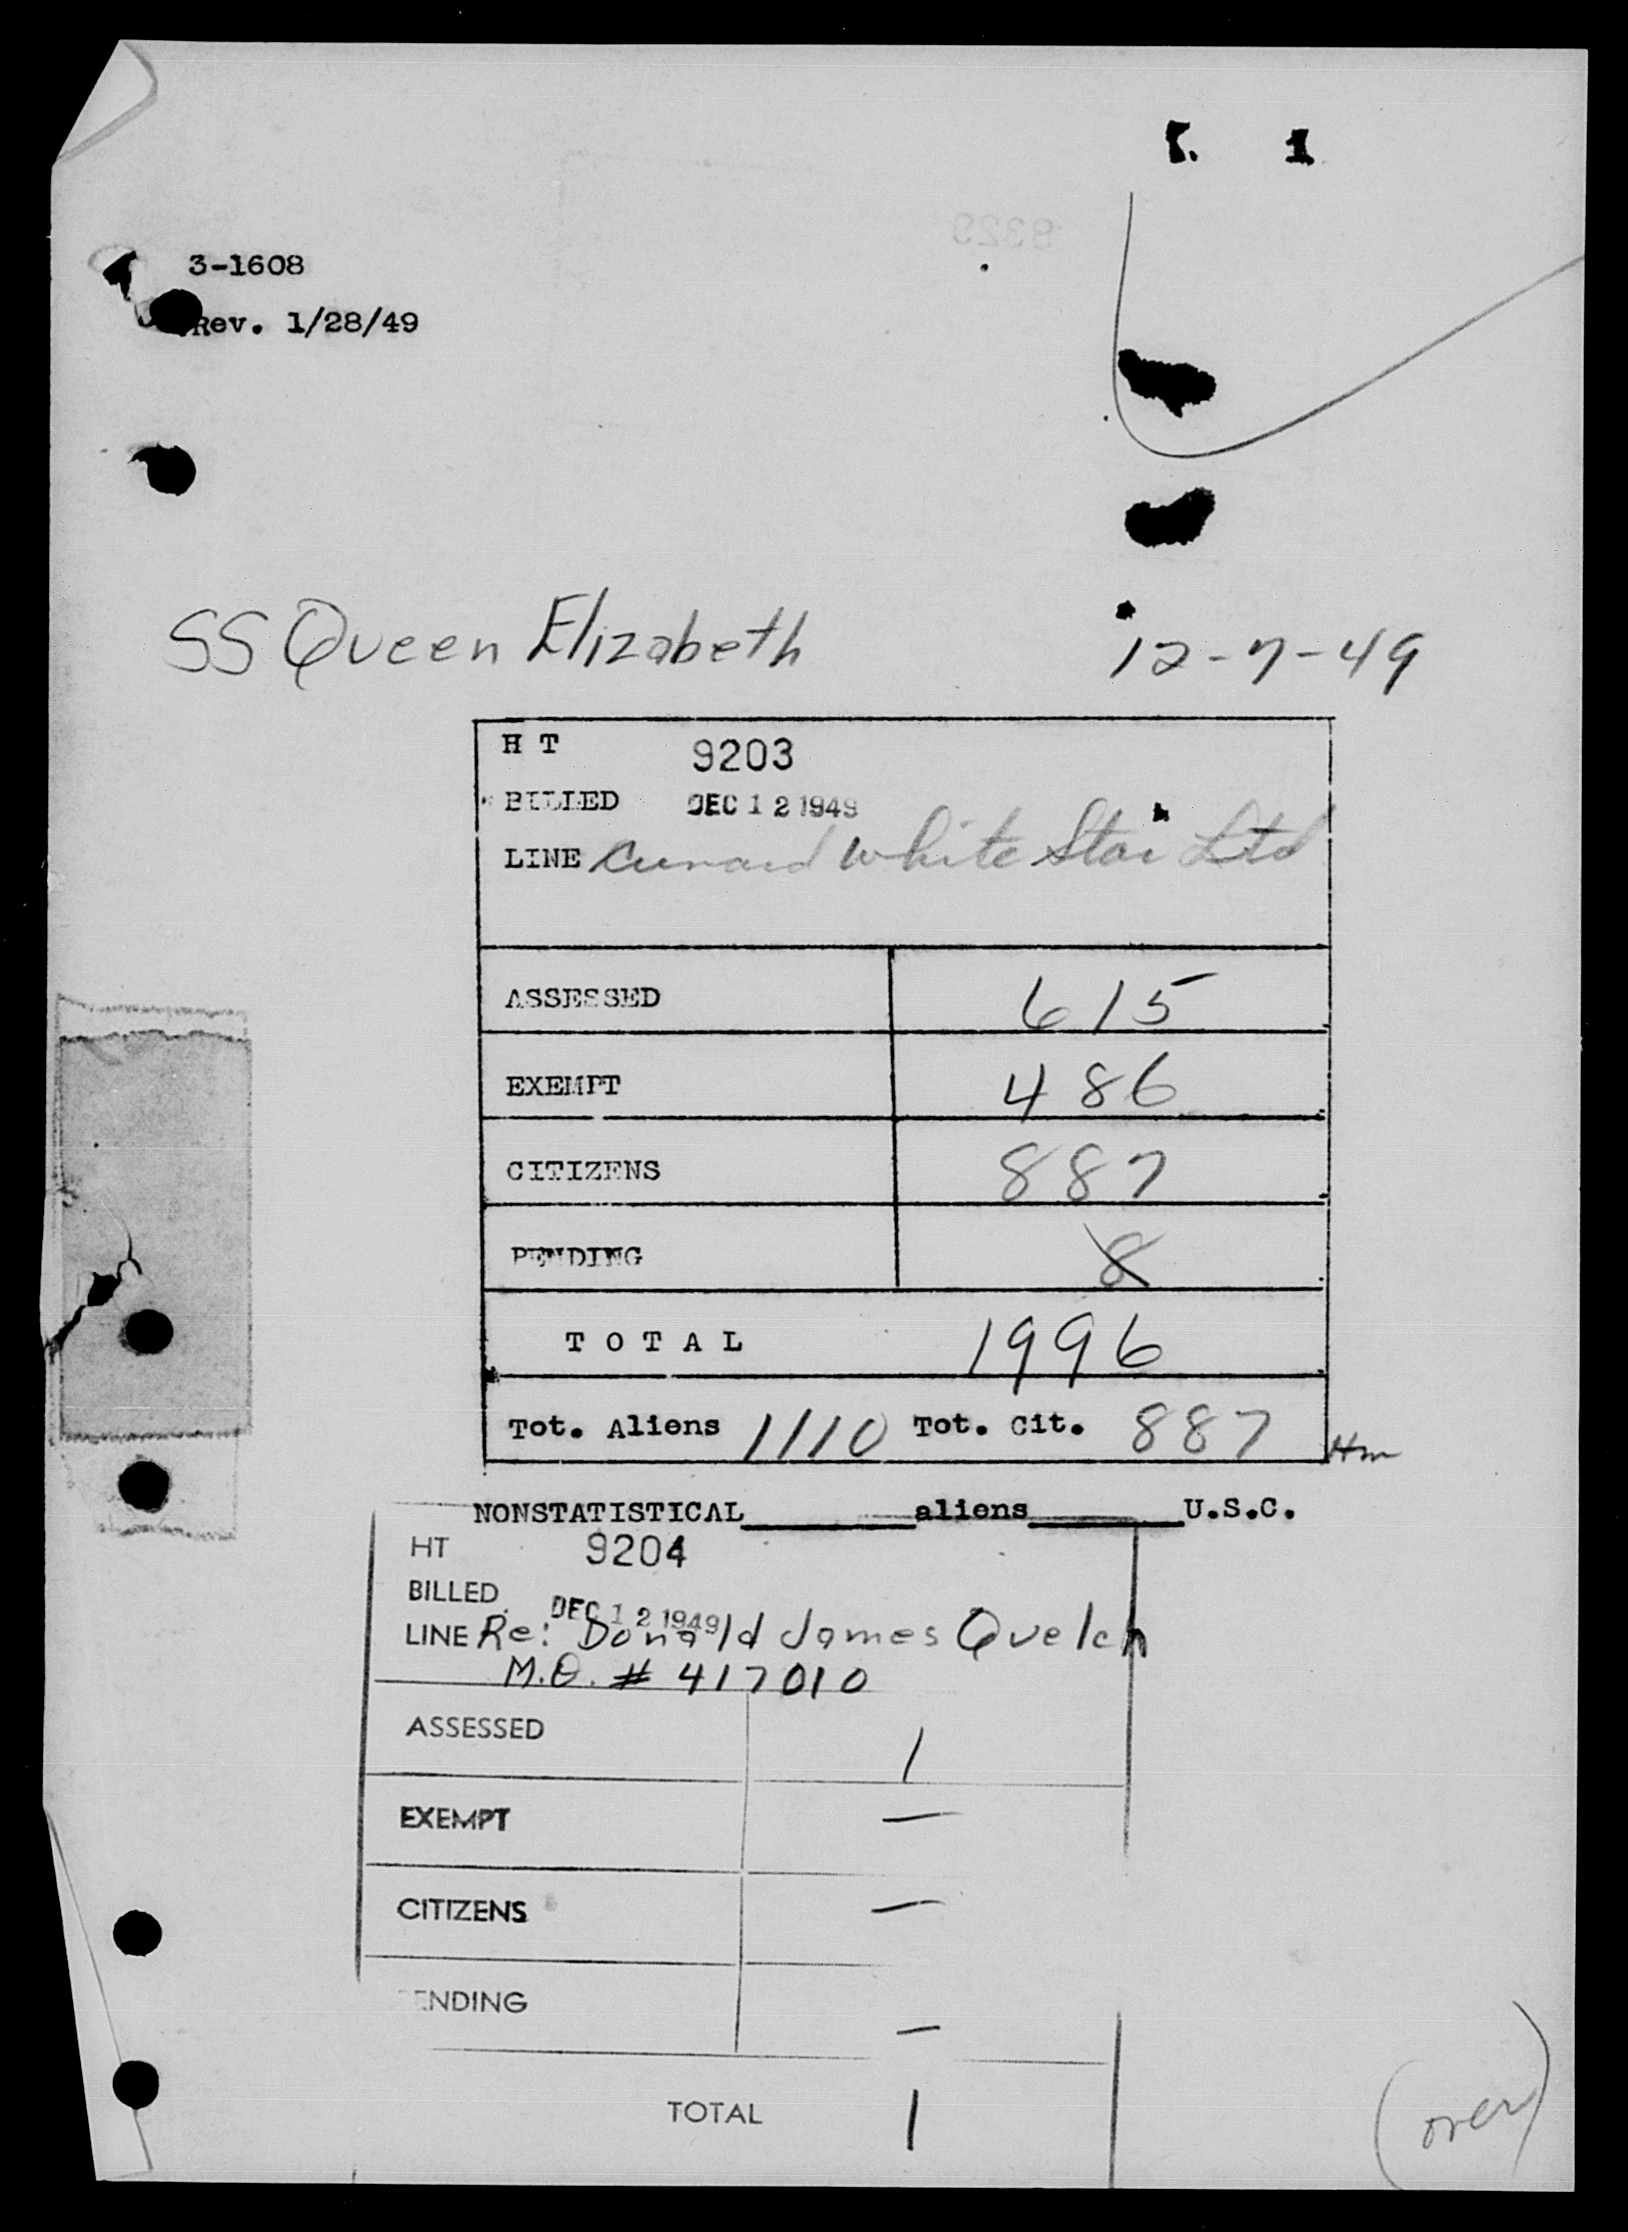 1
3-1608
Rev. 1/28/49
SS Queen Elizabeth 12-7-49
H T 9203
BILLED DEC 12 1949
LINE Cunard White Star Ltd
ASSESSED 615
EXEMPT 486
CITIZENS 887
PENDING 8
TOTAL 1996
Tot. Aliens 1110 Tot. Cit. 887 Hm
NONSTATISTICAL aliens U.S.C.
HT 9204
BILLED DEC 12 1949
LINE Re: Donald James Quelch
M.O. # 417010
ASSESSED 1
EXEMPT —
CITIZENS —
ENDING —
TOTAL 1
(over)